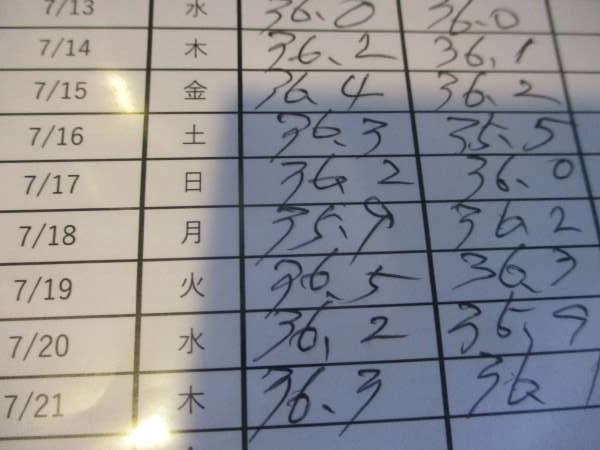 7/13 水 36.0 36.0
7/14 木 36.2 36.1
7/15 金 36.4 36.2
7/16 土 36.3 35.5
7/17 日 36.2 36.0
7/18 月 35.9 36.2
7/19 火 36.5 36.3
7/20 水 36.2 35.9
7/21 木 36.3 36.1